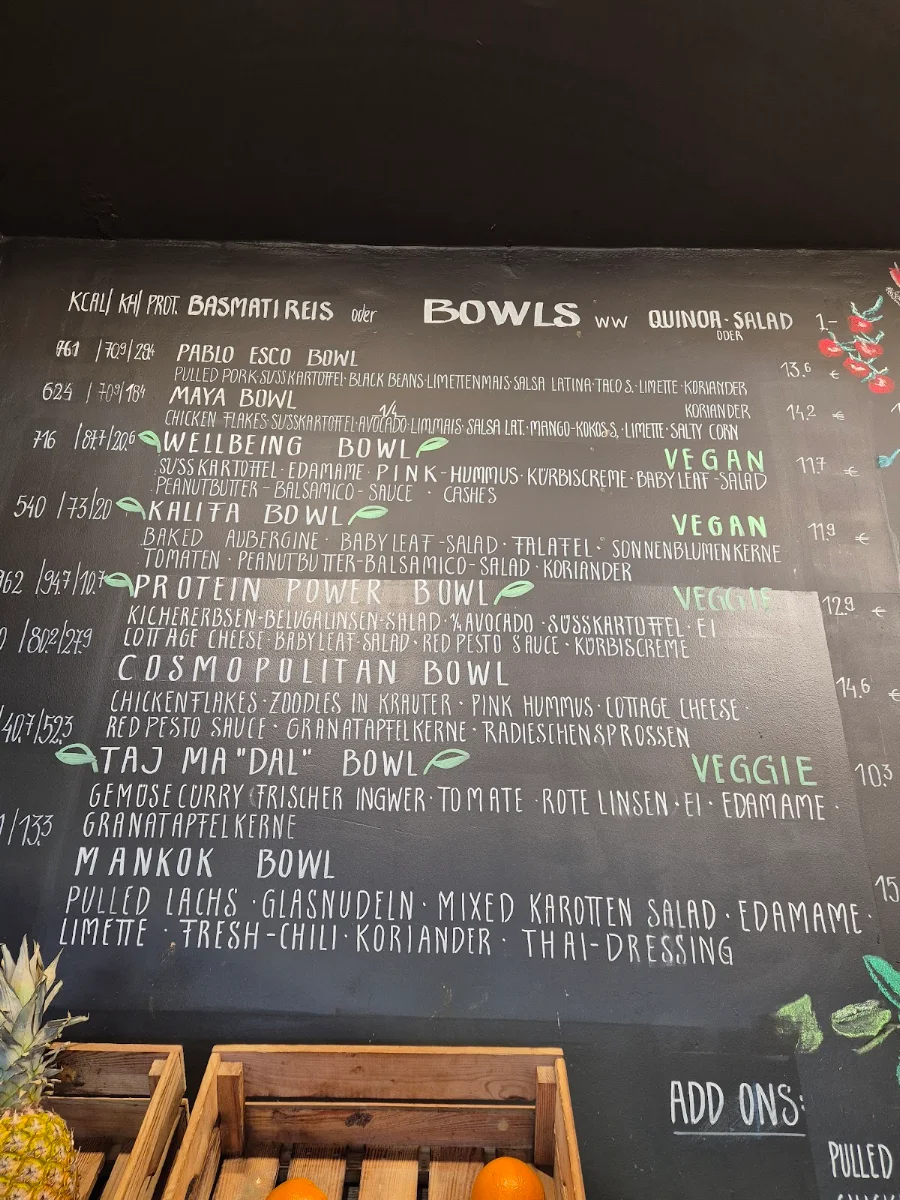 KCAL/ KH/ PROT. BASMATI REIS oder BOWLS WW QUINOA-SALAD 1,-
ODER
761 /70,9/28,4 PABLO ESCO BOWL 13.6 €
PULLED PORK·SÜSSKARTOFFEL·BLACK BEANS·LIMETTENMAIS·SALSA LATINA·TACO S.·LIMETTE·KORIANDER
624 /70,9/18,4 MAYA BOWL KORIANDER 14,2 €
CHICKEN FLAKES·SÜSSKARTOFFEL·1/4 AVOCADO·LIMMAIS·SALSA LAT.·MANGO-KOKOS S.·LIMETTE·SALTY CORN
716 /87,7/20,6 WELLBEING BOWL VEGAN 11,7 €
SÜSSKARTOFFEL·EDAMAME·PINK-HUMMUS·KÜRBISCREME·BABYLEAF-SALAD
PEANUTBUTTER-BALSAMICO-SAUCE · CASHES
540 /73/20 KALIFA BOWL VEGAN 11,9 €
BAKED AUBERGINE · BABYLEAF-SALAD · FALAFEL · SONNENBLUMENKERNE
TOMATEN · PEANUTBUTTER-BALSAMICO-SALAD · KORIANDER
962 /94,7/10,7 PROTEIN POWER BOWL VEGGIE 12,9 €
KICHERERBSEN-BELUGALINSEN-SALAD·1/4 AVOCADO·SÜSSKARTOFFEL·EI
COTTAGE CHEESE·BABYLEAF-SALAD·RED PESTO SAUCE·KÜRBISCREME
0 /80,2/27,9 COSMOPOLITAN BOWL 14.6 €
CHICKENFLAKES·ZOODLES IN KRÄUTER·PINK HUMMUS·COTTAGE CHEESE·
RED PESTO SAUCE·GRANATAPFELKERNE·RADIESCHENSPROSSEN
/40,7/52,3 TAJ MA"DAL" BOWL VEGGIE 10,3
GEMÜSECURRY (FRISCHER INGWER·TOMATE·ROTE LINSEN·EI·EDAMAME·
GRANATAPFELKERNE
/13,3 MANKOK BOWL 15
PULLED LACHS·GLASNUDELN·MIXED KAROTTEN SALAD·EDAMAME·
LIMETTE·FRESH-CHILI·KORIANDER·THAI-DRESSING
ADD ONS:
PULLED